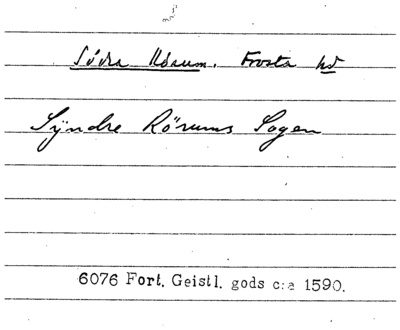 Södra Rörum. Frosta hd
Syndre Rörums Sogen
6076 Fort. Geistl. gods c:a 1590.